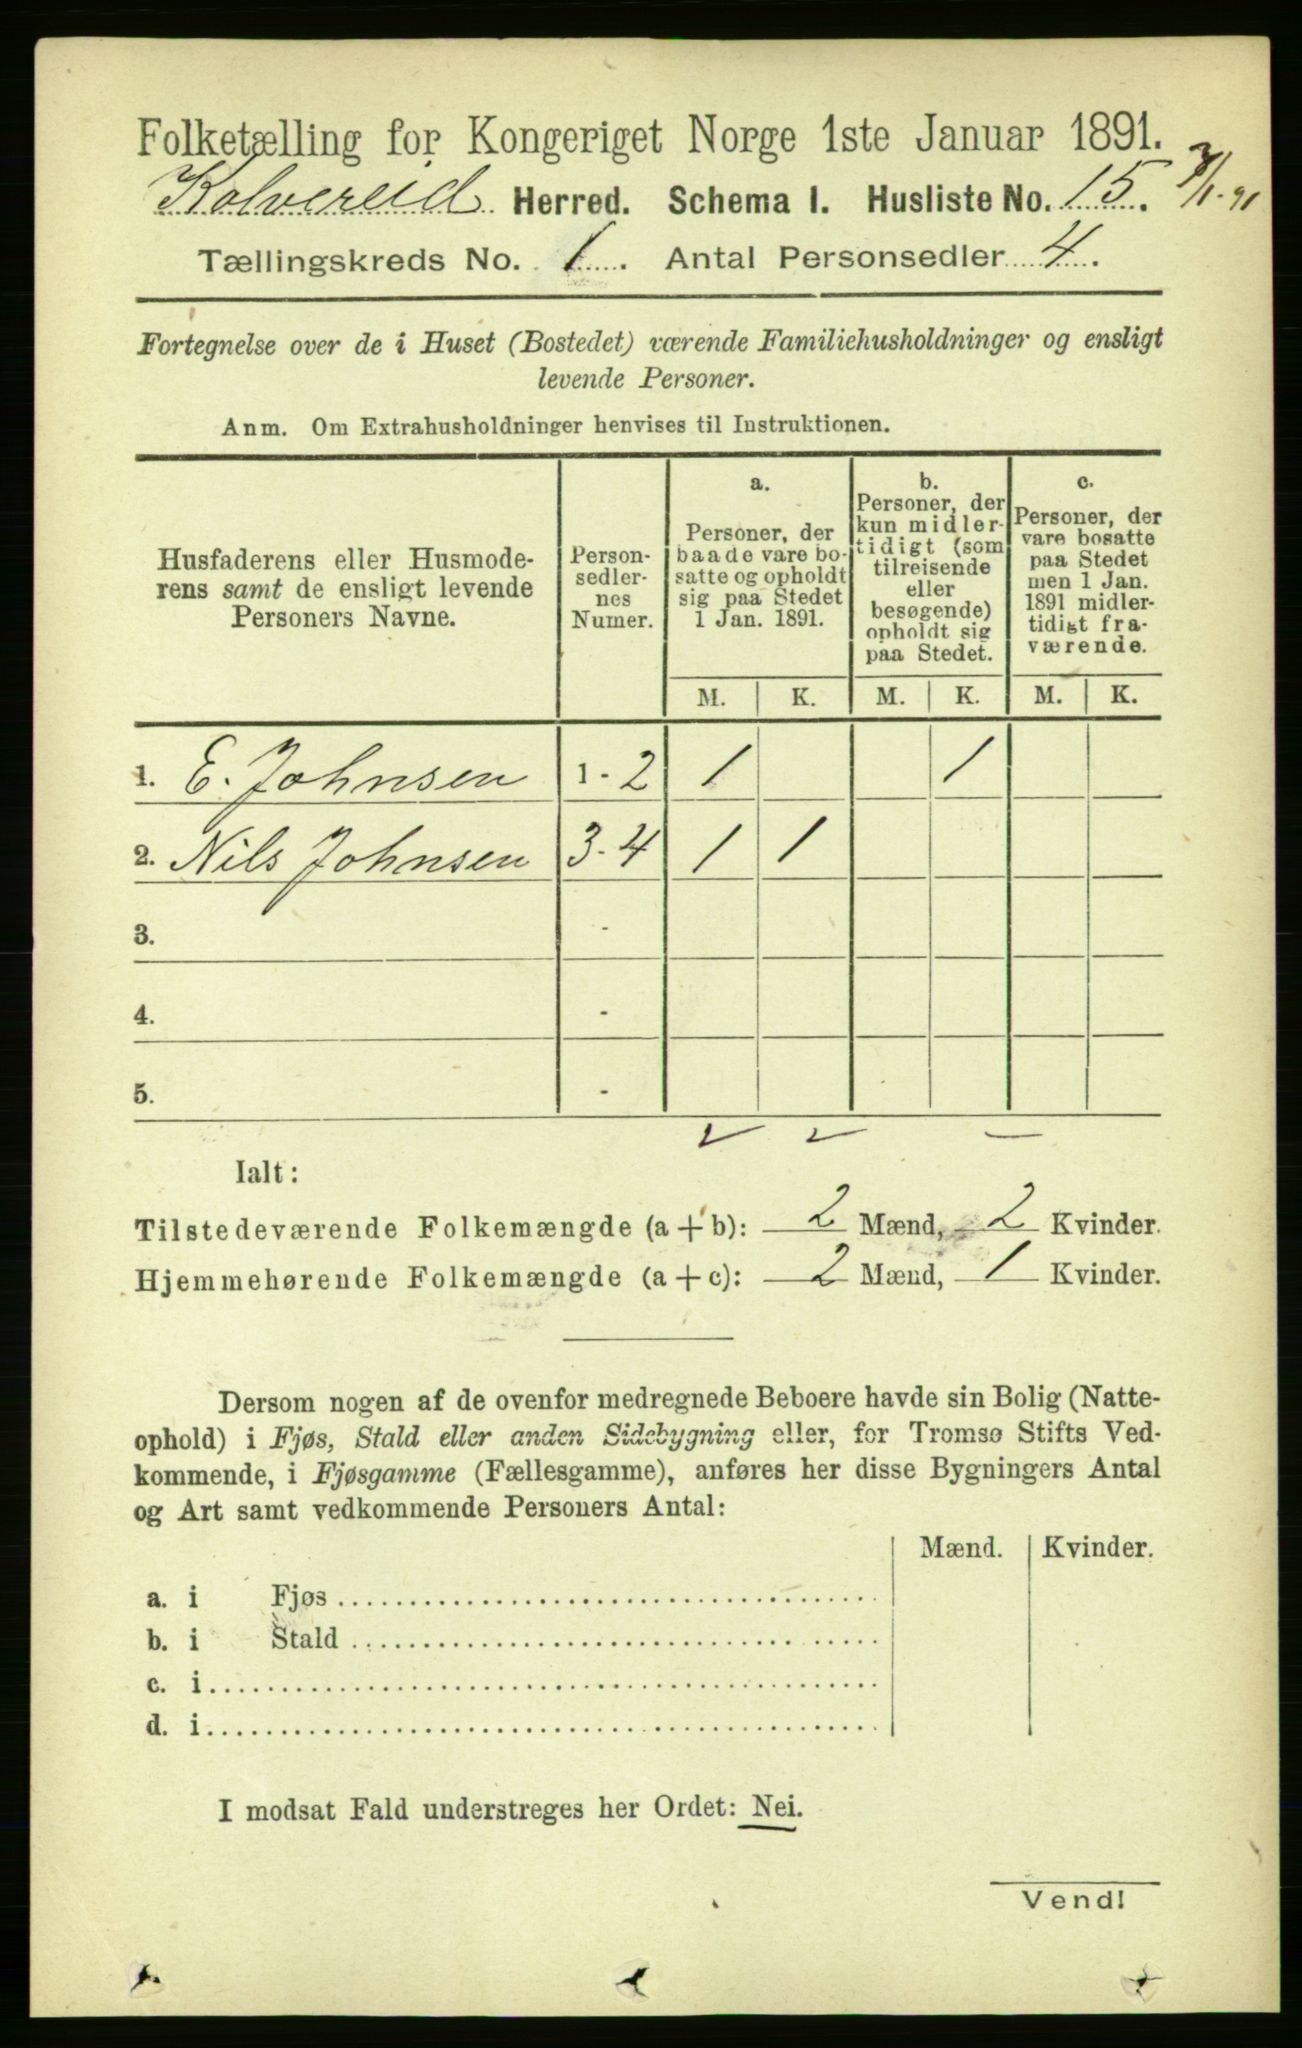 Folketælling for Kongeriget Norge 1ste Januar 1891.
Kolvereid Herred. Schema 1. Husliste No. 15. 7/1-91
Tællingskreds No. 1. Antal Personsedler 4.
Fortegnelse over de i Huset (Bostedet) værende Familiehusholdninger og ensligt
levende Personer.
Anm. Om Extrahusholdninger henvises til Instruktionen.
Husfaderens eller Husmode-
rens samt de ensligt levende
Personers Navne.
Person-
sedler-
nes
Numer.
a.
Personer, der
baade vare bo-
satte og opholdt
sig paa Stedet
1 Jan. 1891.
b.
Personer, der
kun midler-
tidigt (som
tilreisende
eller
besøgende)
opholdt sig
paa Stedet.
c.
Personer, der
vare bosatte
paa Stedet
men 1 Jan.
1891 midler-
tidigt fra-
værende.
M. K. M. K. M. K.
1. E. Johnsen 1 - 2 1 1
2. Nils Johnsen 3 - 4 1 1
3. -
4. -
5. -
2 2 -
Ialt:
Tilstedeværende Folkemængde (a + b): 2 Mænd, 2 Kvinder.
Hjemmehørende Folkemængde (a + c): 2 Mænd, 1 Kvinder.
Dersom nogen af de ovenfor medregnede Beboere havde sin Bolig (Natte-
ophold) i Fjøs, Stald eller anden Sidebygning eller, for Tromsø Stifts Ved-
kommende, i Fjøsgamme (Fællesgamme), anføres her disse Bygningers Antal
og Art samt vedkommende Personers Antal:
Mænd. Kvinder.
a. i Fjøs
b. i Stald
c. i
d. i
I modsat Fald understreges her Ordet: Nei.
Vend!